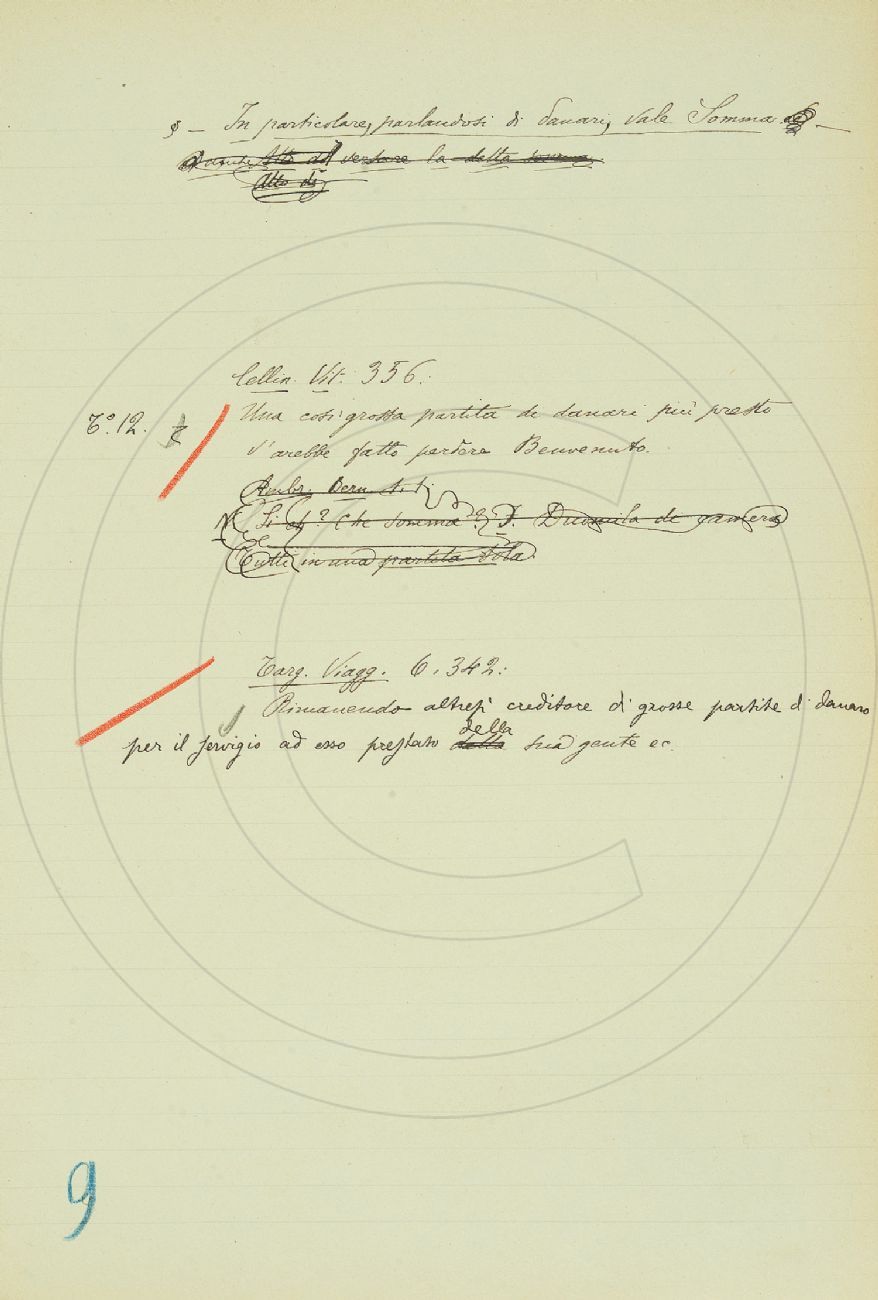 § – In particolare, parlandosi di danari, vale Somma. –
versare la detta somma
Atto di
Cellin. Vit. 356:
T.º 12. Una così grossa partita di danari più presto
l'arebbe fatto perdere Benvenuto.
Ambr. Bern.
Si eh? Che somma? F. Duomila di camera
Tutti in una partita sola.
Targ. Viagg. 6. 342:
Rimanendo altresì creditore di grosse partite di danaro
della
per il servigio ad esso prestato dalla sua gente ec.
9